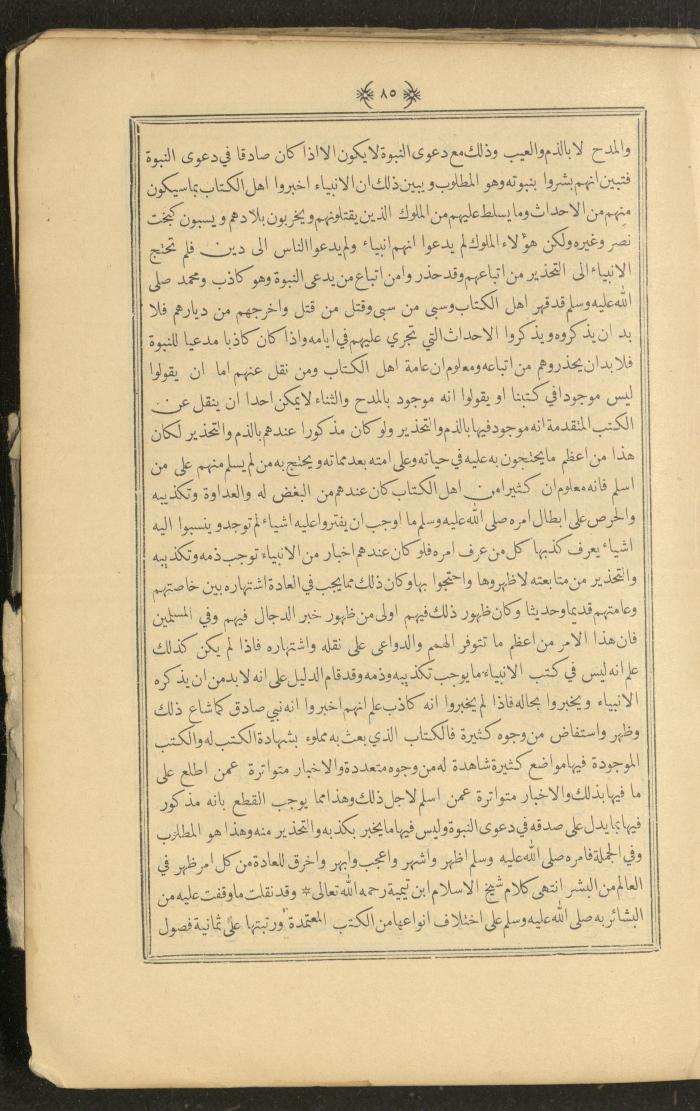 ﴿ ٨٥ ﴾
والمدح لا بالذم والعيب وذلك مع دعوى النبوة لا يكون الا اذا كان صادقا في دعوى النبوة
فتبين انهم بشروا بنبوته وهو المطلوب ويبين ذلك ان الانبياء اخبروا اهل الكتاب بما سيكون
منهم من الاحداث وما يسلط عليهم من الملوك الذين يقتلونهم ويخربون بلادهم ويسبون كبخت
نصر وغيره ولكن هؤلاء الملوك لم يدعوا انهم انبياء ولم يدعوا الناس الى دين فلم تحتج
الانبياء الى التحذير من اتباعهم وقد حذروا من اتباع من يدعى النبوة وهو كاذب ومحمد صلى
الله عليه وسلم قد قهر اهل الكتاب وسبى من سبى وقتل من قتل واخرجهم من ديارهم فلا
بد ان يذكروه ويذكروا الاحداث التي تجري عليهم في ايامه واذا كان كاذبا مدعيا للنبوة
فلا بد ان يحذروهم من اتباعه ومعلوم ان عامة اهل الكتاب ومن نقل عنهم اما ان يقولوا
ليس موجودا في كتبنا او يقولوا انه موجود بالمدح والثناء لا يمكن احدا ان ينقل عن
الكتب المتقدمة انه موجود فيها بالذم والتحذير ولو كان مذكورا عندهم بالذم والتحذير لكان
هذا من اعظم ما يحتجون به عليه في حياته وعلى امته بعد مماته ويحتج به من لم يسلم منهم على من
اسلم فانه معلوم ان كثيرا من اهل الكتاب كان عندهم من البغض له والعداوة وتكذيبه
والحرص على ابطال امره صلى الله عليه وسلم ما اوجب ان يفتروا عليه اشياء لم توجد وينسبوا اليه
اشياء يعرف كذبها كل من عرف امره فلو كان عندهم اخبار من الانبياء توجب ذمه وتكذيبه
والتحذير من متابعته لاظهروها واحتجوا بها وكان ذلك مما يجب في العادة اشتهاره بين خاصتهم
وعامتهم قديما وحديثا وكان ظهور ذلك فيهم اولى من ظهور خبر الدجال فيهم وفي المسلمين
فان هذا الامر من اعظم ما تتوفر الهمم والدواعى على نقله واشتهاره فاذا لم يكن كذلك
علم انه ليس في كتب الانبياء ما يوجب تكذيبه وذمه وقد قام الدليل على انه لا بد من ان يذكره
الانبياء ويخبروا بحاله فاذا لم يخبروا انه كاذب علم انهم اخبروا انه نبي صادق كما شاع ذلك
وظهر واستفاض من وجوه كثيرة فالكتاب الذي بعث به مملوء بشهادة الكتب له والكتب
الموجودة فيها مواضع كثيرة شاهدة له من وجوه متعددة والاخبار متواترة عمن اطلع على
ما فيها بذلك والاخبار متواترة عمن اسلم لاجل ذلك وهذا مما يوجب القطع بانه مذكور
فيها بما يدل على صدقه في دعوى النبوة وليس فيها ما يخبر بكذبه والتحذير منه وهذا هو المطلوب
وفي الجملة فامره صلى الله عليه وسلم اظهر واشهر واعجب وابهر واخرق للعادة من كل امر ظهر في
العالم من البشر انتهى كلام شيخ الاسلام ابن تيمية رحمه الله تعالى * وقد نقلت ما وقفت عليه من
البشائر به صلى الله عليه وسلم على اختلاف انواعها من الكتب المعتمدة ورتبتها على ثمانية فصول